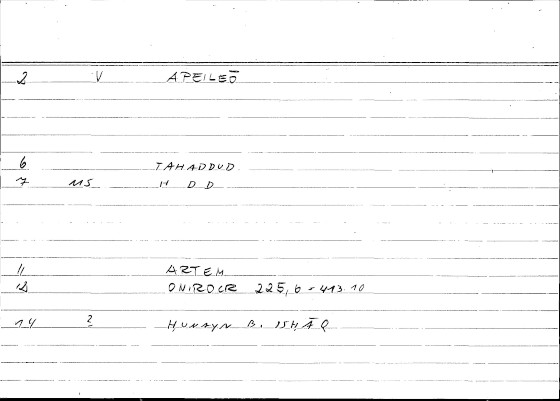 2 V APEILEŌ
6 TAHADDUD
7 MS H D D
11 ARTEM
12 ONIROCR 225,6 = 413.10
14 ? ḤUNAYN B. ISḤĀQ